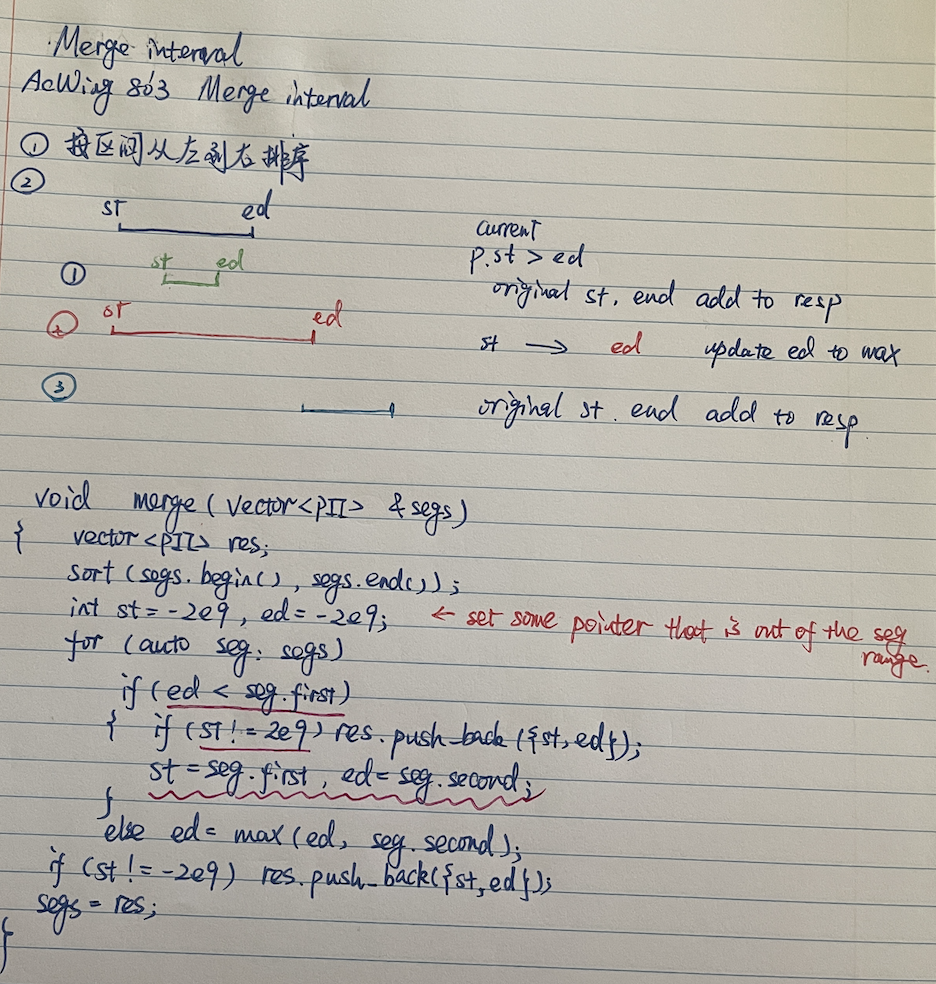 Merge interval
AcWing 803 Merge interval
① 按区间从左到右排序
②
st ed
① st ed
② st ed
③
current
p.st > ed
original st, end add to resp
st → ed update ed to max
original st. end add to resp.
void merge (vector<PII> &segs)
{ vector<PII> res;
sort (segs.begin(), segs.end());
int st = -2e9, ed = -2e9; ← set some pointer that is out of the seg
range.
for (auto seg: segs)
if (ed < seg.first)
{ if (st != 2e9) res.push_back({st, ed});
st = seg.first, ed = seg.second;
}
else ed = max(ed, seg.second);
if (st != -2e9) res.push_back({st, ed});
segs = res;
}